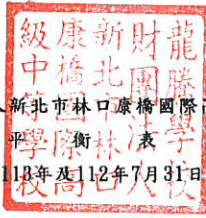 龍
學校
財團法人
新北市林口
康橋國際高
級中等學校
新北市林口康橋國際
平衡表
113年及112年7月31日